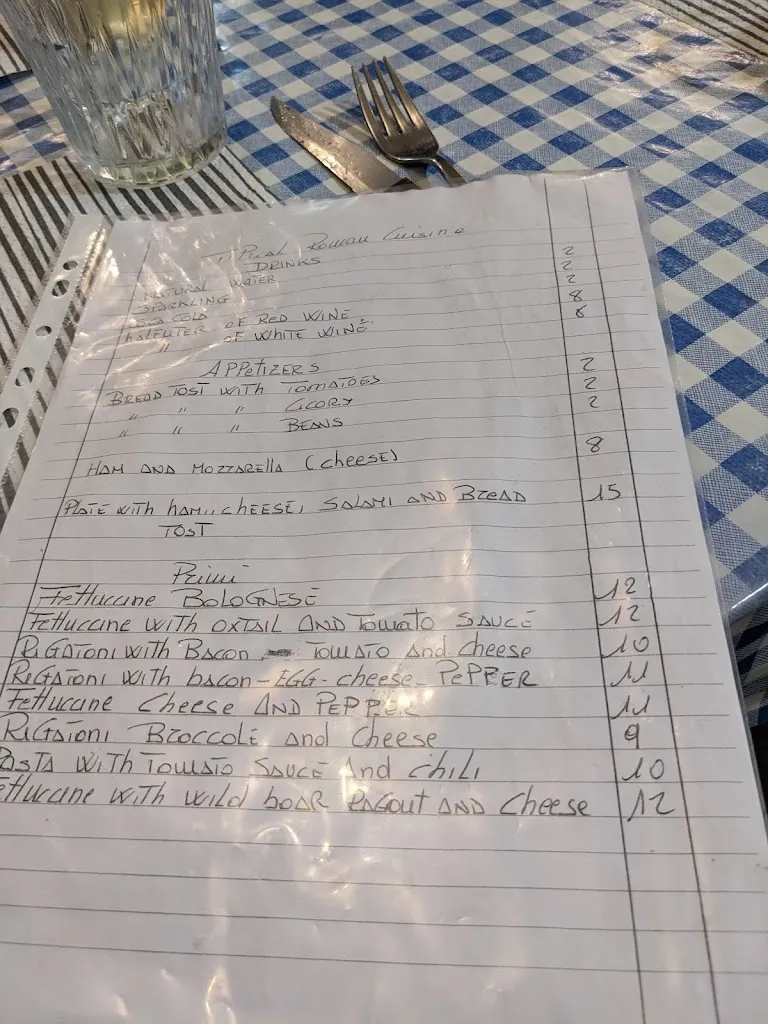 Typical Roman Cuisine
DRINKS
NATURAL WATER 2
SPARKLING 2
COLD 2
halfliter of RED WINE 8
" of WHITE WINE 8
APPetizers
BREAD TOST WITH TOMATOES 2
" " " 2
" " " BEANS 2
HAM AND MOZZARELLA (cheese) 8
PLATE WITH HAM, CHEESE, SALAMI AND BREAD 15
TOST
Primi
Fettuccine BOLOGNESE 12
Fettuccine WITH OXTAIL AND Tomato SAUCE 12
RIGATONI WITH BACON - TOMATO And cheese 10
RIGATONI WITH bacon - EGG - cheese - PePPER 11
Fettuccine Cheese AND PEPPER 11
RIGATONI BROCCOLI and Cheese 9
PASTA WITH TOMATO SAUCE And Chili 10
ettuccine WITH WILD BOAR RAGOUT AND Cheese 12